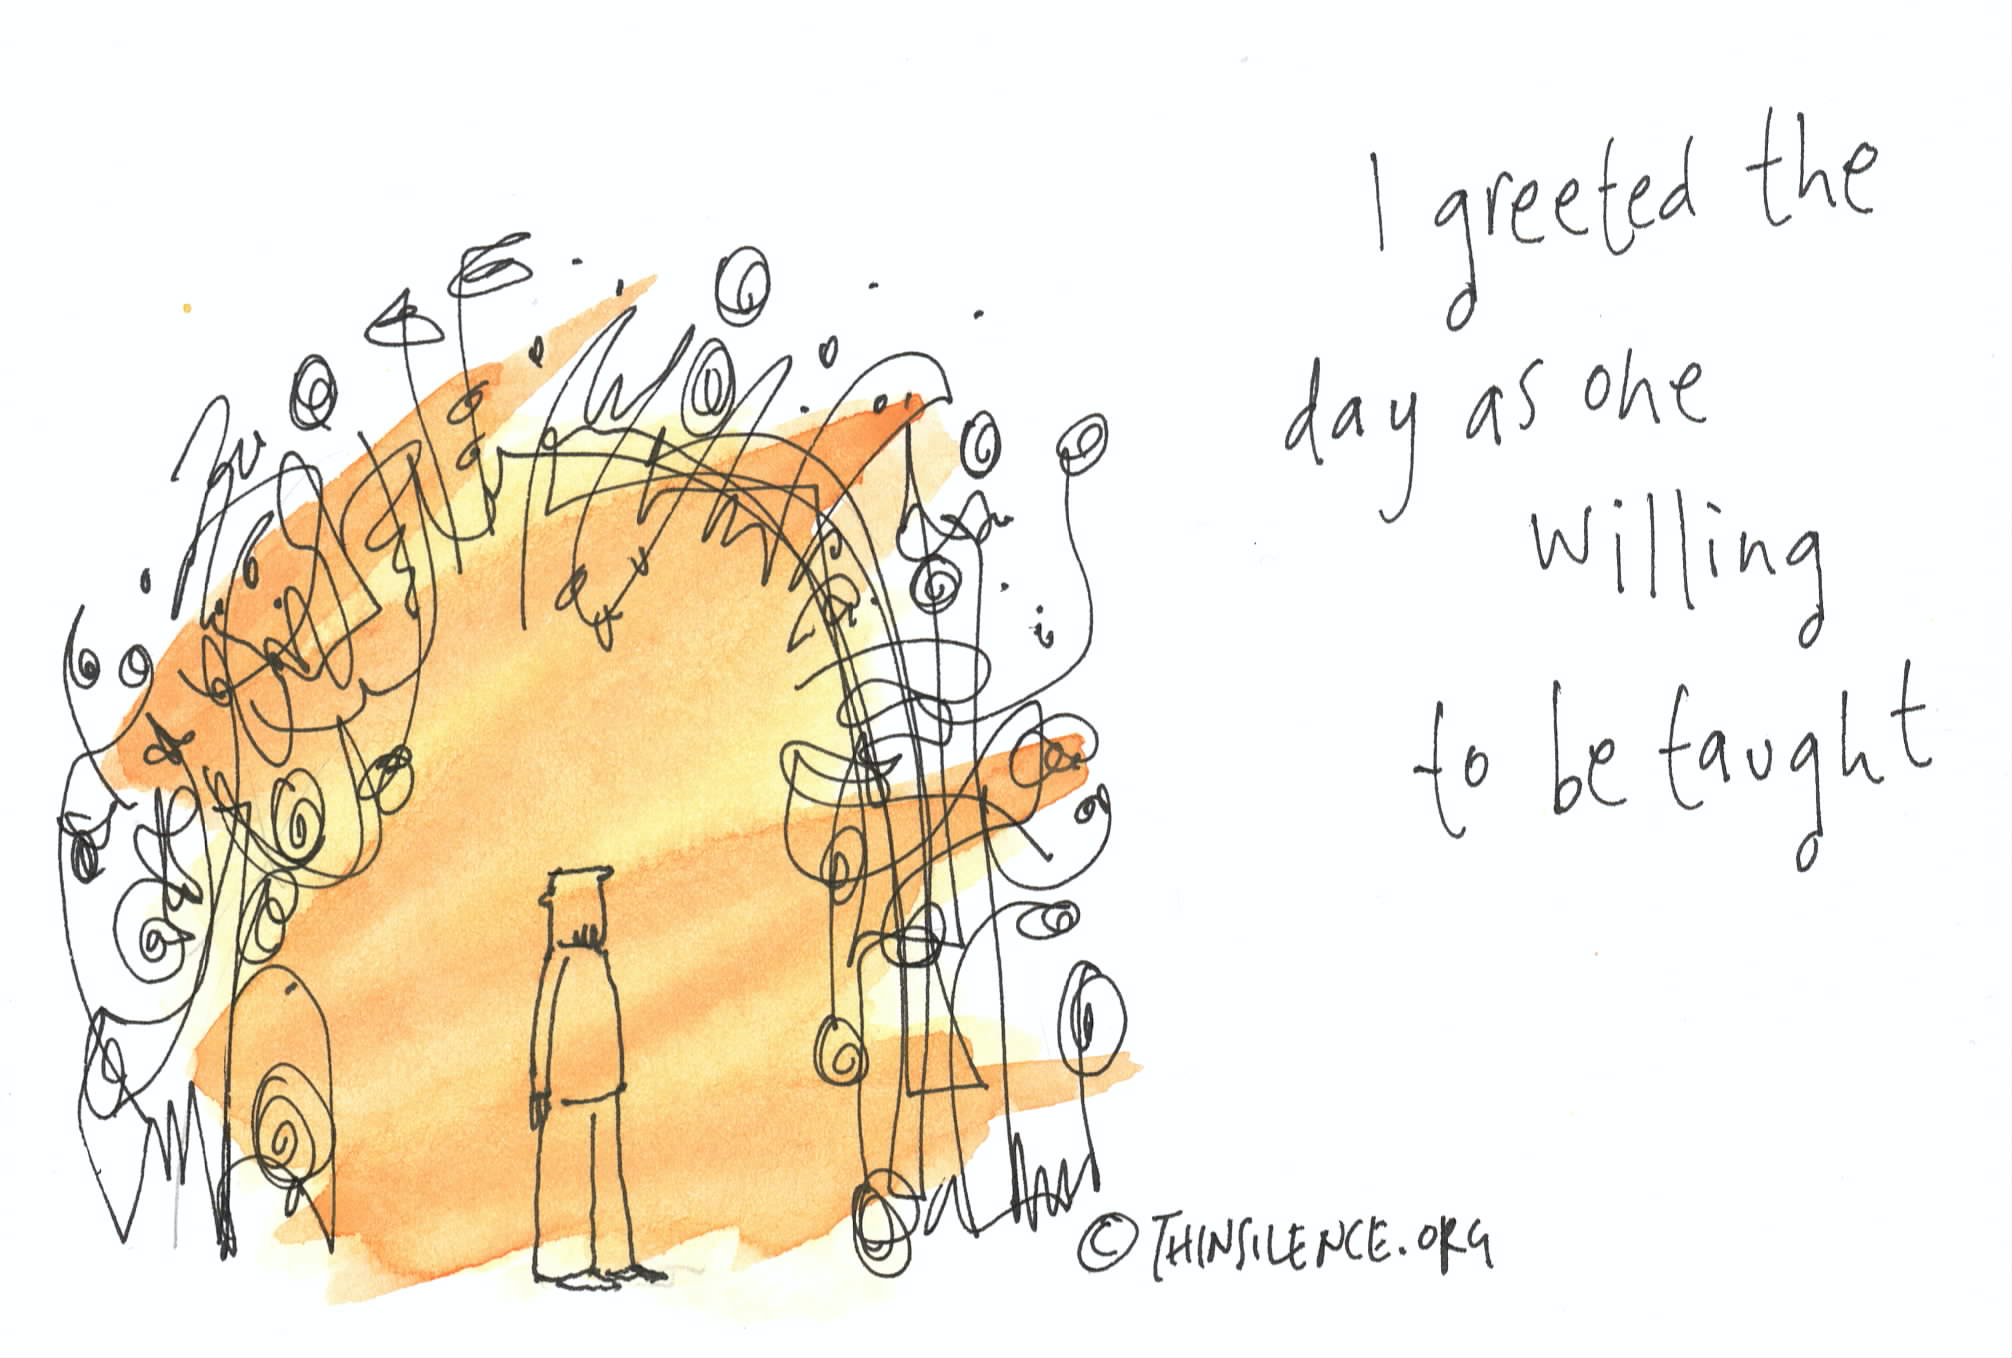 I greeted the
day as one
willing
to be taught
© THINSILENCE.ORG